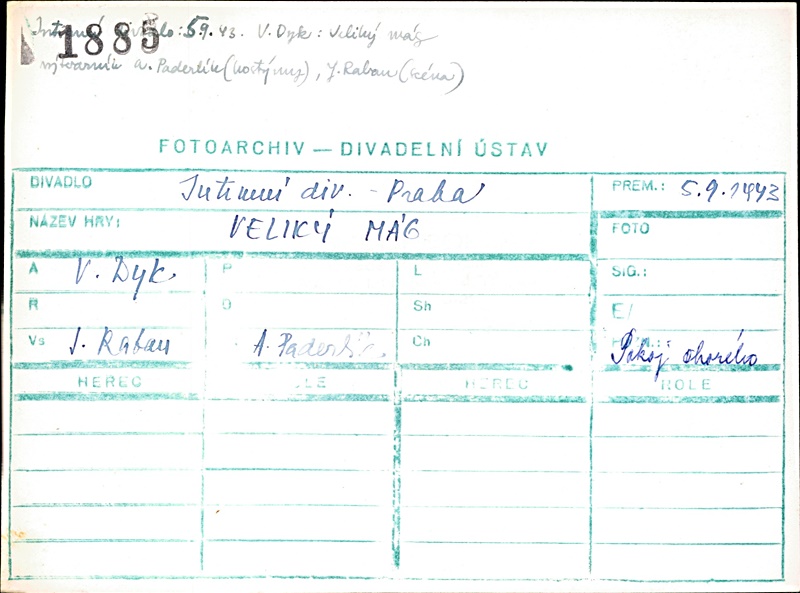 Intimní divadlo: 5.9.43. V. Dyk: Veliký mág
1885
výtvarník A. Paderlík (kostýmy), J. Raban (scéna)
FOTOARCHIV — DIVADELNÍ ÚSTAV
DIVADLO Intimní div. - Praha PREM.: 5.9.1943
NÁZEV HRY: VELIKÝ MÁG FOTO
A V. Dyk P L SIG.:
R O Sh E/
Vs J. Raban A. Paderlík Ch Pokoj chorého
HEREC HEREC ROLE